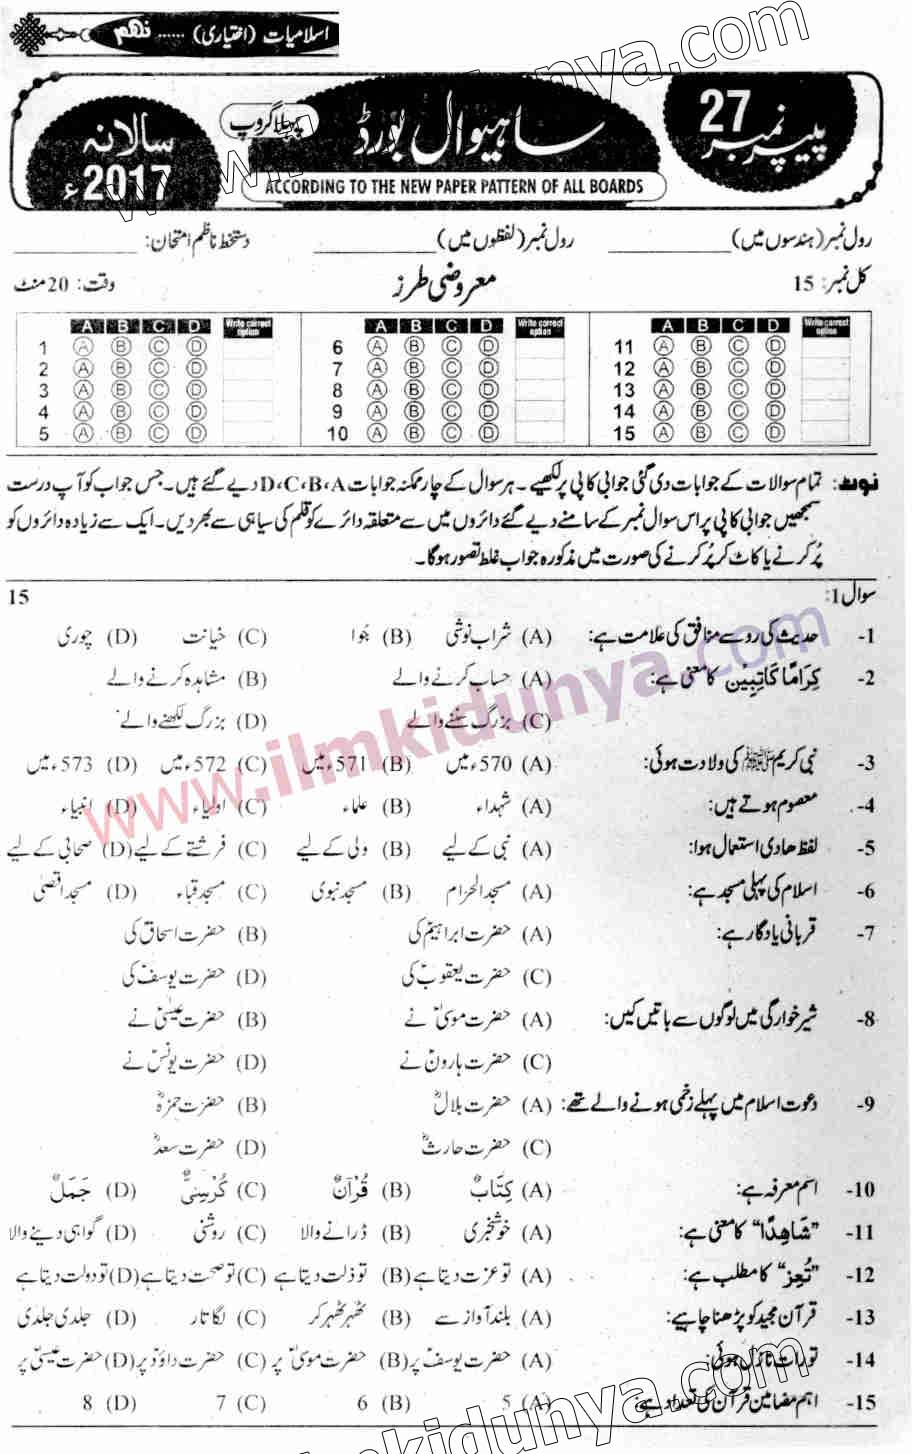 اسلامیات (اختیاری) ...... نہم
پیپر نمبر 27
ساہیوال بورڈ
پہلا گروپ
سالانہ 2017ء
ACCORDING TO THE NEW PAPER PATTERN OF ALL BOARDS
رول نمبر (ہندسوں میں) ____________ رول نمبر (لفظوں میں) ____________ دستخط ناظم امتحان: ____________
کل نمبر: 15 معروضی طرز وقت: 20 منٹ
A B C D Write correct option A B C D Write correct option A B C D Write correct option
1 A B C D 6 A B C D 11 A B C D
2 A B C D 7 A B C D 12 A B C D
3 A B C D 8 A B C D 13 A B C D
4 A B C D 9 A B C D 14 A B C D
5 A B C D 10 A B C D 15 A B C D
نوٹ: تمام سوالات کے جوابات دی گئی جوابی کاپی پر لکھیے۔ ہر سوال کے چار ممکنہ جوابات D،C،B،A دیے گئے ہیں۔ جس جواب کو آپ درست
سمجھیں جوابی کاپی پر اس سوال نمبر کے سامنے دیے گئے دائروں میں سے متعلقہ دائرے کو قلم کی سیاہی سے بھر دیں۔ ایک سے زیادہ دائروں کو
پُر کرنے یا کاٹ کر پُر کرنے کی صورت میں مذکورہ جواب غلط تصور ہوگا۔
سوال 1: 15
1- حدیث کی رو سے منافق کی علامت ہے: (A) شراب نوشی (B) جُوا (C) خیانت (D) چوری
2- کِرَامًا کَاتِبِیْن کا معنی ہے: (A) حساب کرنے والے (B) مشاہدہ کرنے والے
(C) بزرگ سننے والے (D) بزرگ لکھنے والے
3- نبی کریم ﷺ کی ولادت ہوئی: (A) 570ء میں (B) 571ء میں (C) 572ء میں (D) 573ء میں
4- معصوم ہوتے ہیں: (A) شہداء (B) علماء (C) اولیاء (D) انبیاء
5- لفظ ھادی استعمال ہوا: (A) نبی کے لیے (B) ولی کے لیے (C) فرشتے کے لیے (D) صحابی کے لیے
6- اسلام کی پہلی مسجد ہے: (A) مسجد الحرام (B) مسجد نبوی (C) مسجد قباء (D) مسجد اقصیٰ
7- قربانی یادگار ہے: (A) حضرت ابراہیمؑ کی (B) حضرت اسحاق کی
(C) حضرت یعقوبؑ کی (D) حضرت یوسفؑ کی
8- شیر خوارگی میں لوگوں سے باتیں کیں: (A) حضرت موسیٰؑ نے (B) حضرت عیسیٰؑ نے
(C) حضرت ہارونؑ نے (D) حضرت یونسؑ نے
9- دعوت اسلام میں پہلے زخمی ہونے والے تھے: (A) حضرت بلالؓ (B) حضرت حمزہؓ
(C) حضرت حارثؓ (D) حضرت سعدؓ
10- اسم معرفہ ہے: (A) کِتَابٌ (B) قُرْآنٌ (C) کُرْسِیٌّ (D) جَمَلٌ
11- ”شَاهِدًا“ کا معنی ہے: (A) خوشخبری (B) ڈرانے والا (C) روشنی (D) گواہی دینے والا
12- ”تُعِز“ کا مطلب ہے: (A) تو عزت دیتا ہے (B) تو ذلت دیتا ہے (C) تو صحت دیتا ہے (D) تو دولت دیتا ہے
13- قرآن مجید کو پڑھنا چاہیے: (A) بلند آواز سے (B) ٹھہر ٹھہر کر (C) لگاتار (D) جلدی جلدی
14- تورات نازل ہوئی: (A) حضرت یوسفؑ پر (B) حضرت موسیٰؑ پر (C) حضرت داؤدؑ پر (D) حضرت عیسیٰؑ پر
15- اہم مضامین قرآن کی تعداد ہے: (A) 5 (B) 6 (C) 7 (D) 8
www.ilmkidunya.com